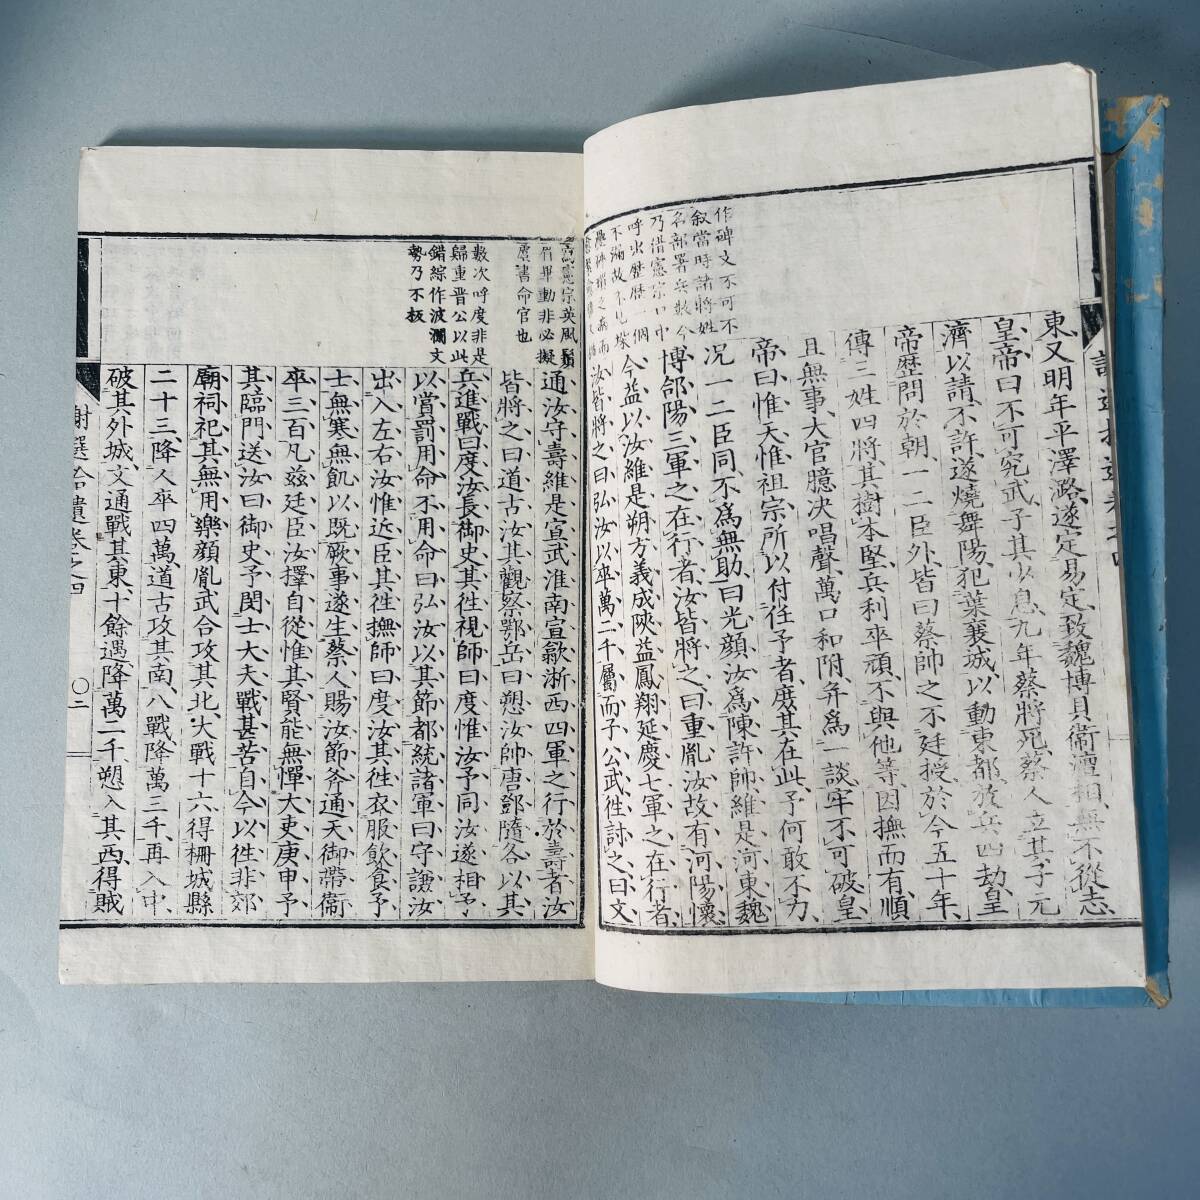 作碑文不可不
叙當時諸將姓
名部署兵數今
乃借憲宗口中
呼出歷歷一個
不滿故不見垛
疊
東又明年平澤潞遂定易定致魏博貝衞澶相無不從志
皇帝曰不可究武予其少息九年蔡將死蔡人立其子元
濟以請不許遂燒舞陽犯葉襄城以動東都放兵四劫皇
帝歷問於朝一二臣外皆曰蔡帥之不廷授於今五十年
傳三姓四將其樹本堅兵利卒頑不與他等因撫而有順
且無事大官臆決唱聲萬口和附并爲一談牢不可破皇
帝曰惟天惟祖宗所以付任予者庶其在此予何敢不力
况一二臣同不爲無助曰光顏汝爲陳許帥維是河東魏
博郃陽三軍之在行者汝皆將之曰重胤汝故有河陽懷
今益以汝維是朔方義成陝益鳳翔延慶七軍之在行者
汝皆將之曰弘汝以卒萬二千屬而子公武徃討之曰文
憲宗英風鬚
眉畢動非必擬
虞書命官也
數次呼度非是
歸重晋公以此
錯綜作波瀾文
勢乃不板
通汝守壽維是宣武淮南宣歙浙西四軍之行於壽者汝
皆將之曰道古汝其觀察鄂岳曰愬汝帥唐鄧隨各以其
兵進戰曰度汝長御史其徃視師曰度惟汝予同汝遂相予
以賞罰用命不用命曰弘汝以其節都統諸軍曰守謙汝
出入左右汝惟近臣其徃撫師曰度汝其徃衣服飲食予
士無寒無飢以既厥事遂生蔡人賜汝節斧通天御帶衞
卒三百凡玆廷臣汝擇自從惟其賢能無憚大吏庚申予
其臨門送汝曰御史予閔士大夫戰甚苦自今以徃非郊
廟祠祀其無用樂顏胤武合攻其北大戰十六得柵城縣
二十三降人卒四萬道古攻其南八戰降萬三千再入申
破其外城文通戰其東十餘遇降萬二千愬入其西得賊
謝選拾遺卷之四
〇二